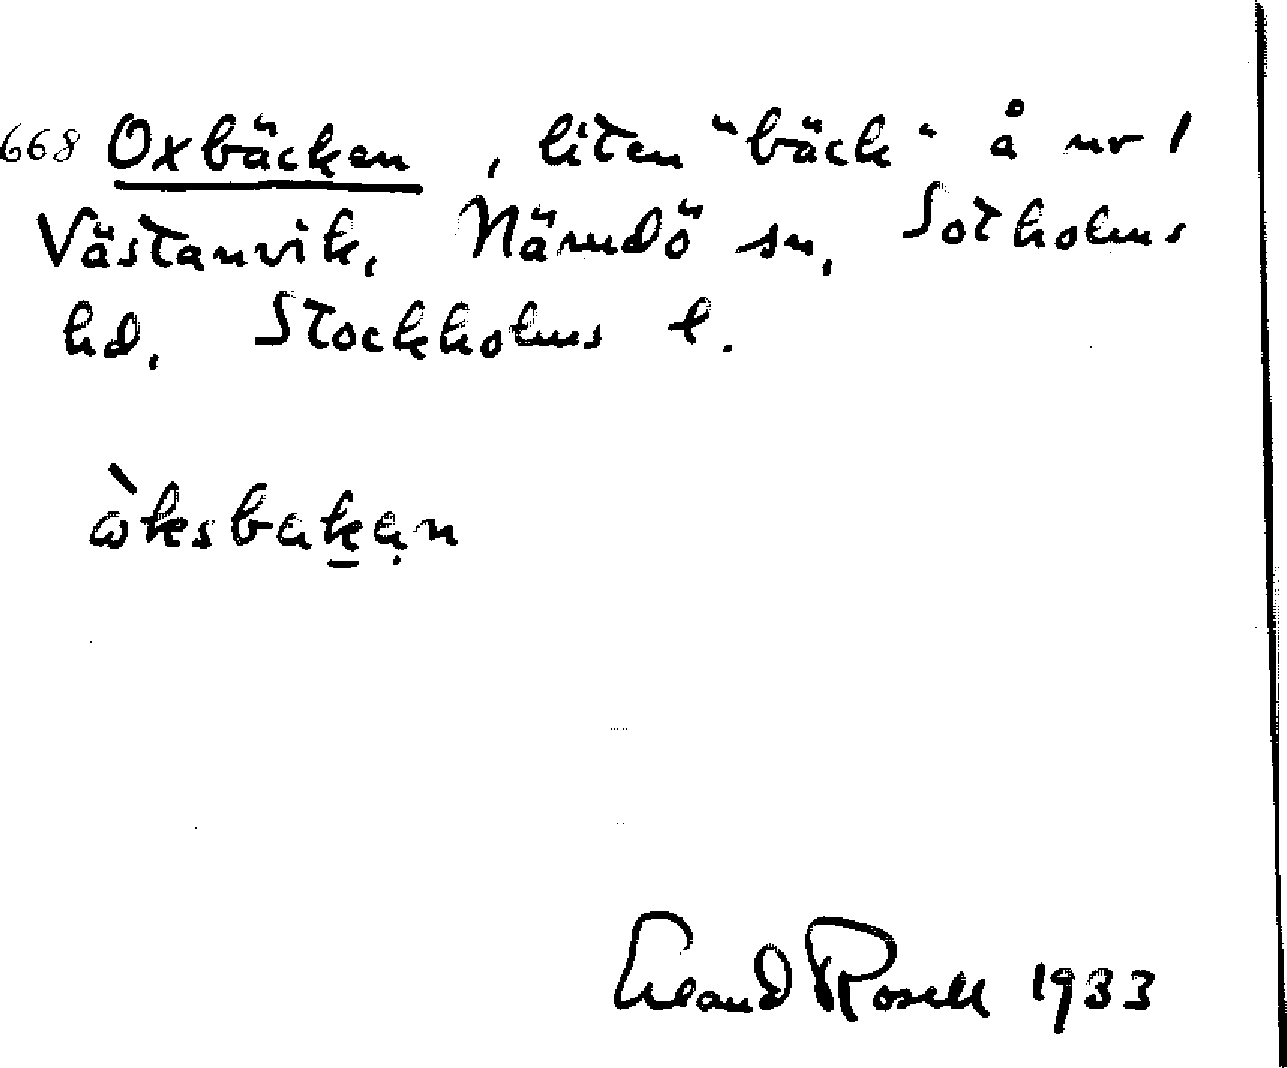 668 Oxbäcken, liten "bäck" å nr 1
Västanvik, Nämdö sn, Sotholms
hd, Stockholms l.
ὼksbakạn
Erland Rosell 1933